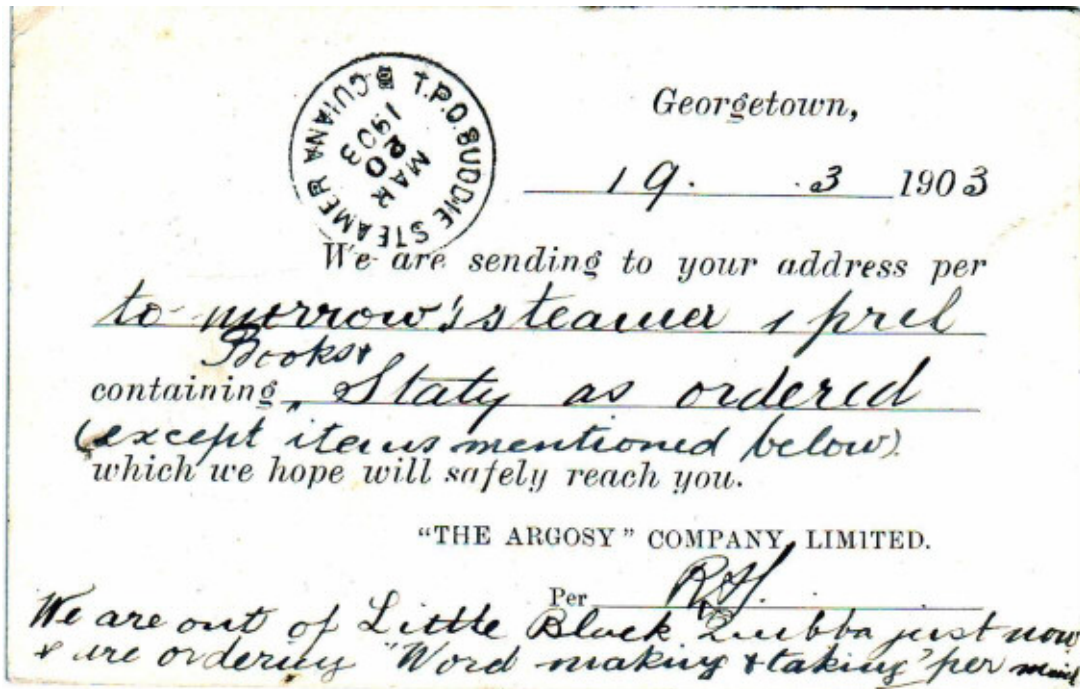 T.P.O. BUDDIE STEAMER B GUIANA
MAR
Georgetown,
19. .3 1903
We are sending to your address per
to morrow's steamer 1 prcl
Books &
containing, Staty as ordered
(except items mentioned below)
which we hope will safely reach you.
"THE ARGOSY" COMPANY, LIMITED.
Per
We are out of Little Black Quibba just now
& are ordering "Word making & taking" per mail